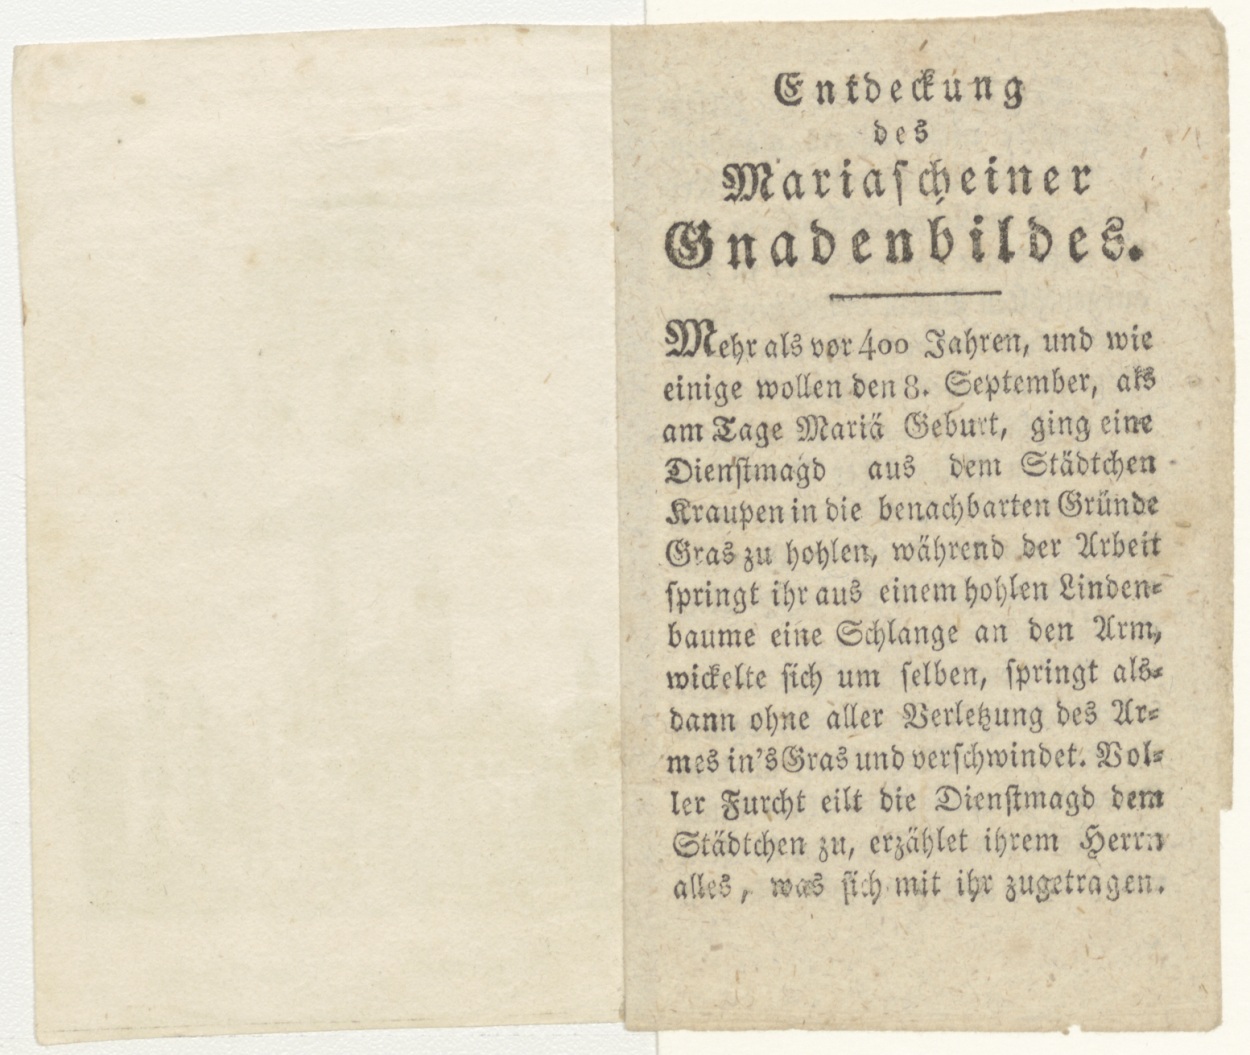 Entdeckung
des
Mariaſcheiner
Gnadenbildes.
Mehr als vor 400 Jahren, und wie
einige wollen den 8. September, als
am Tage Mariä Geburt, ging eine
Dienſtmagd aus dem Städtchen
Kraupen in die benachbarten Gründe
Gras zu hohlen, während der Arbeit
ſpringt ihr aus einem hohlen Linden⸗
baume eine Schlange an den Arm,
wickelte ſich um ſelben, ſpringt als⸗
dann ohne aller Verletzung des Ar⸗
mes in's Gras und verſchwindet. Vol⸗
ler Furcht eilt die Dienſtmagd dem
Städtchen zu, erzählet ihrem Herrn
alles, was ſich mit ihr zugetragen.